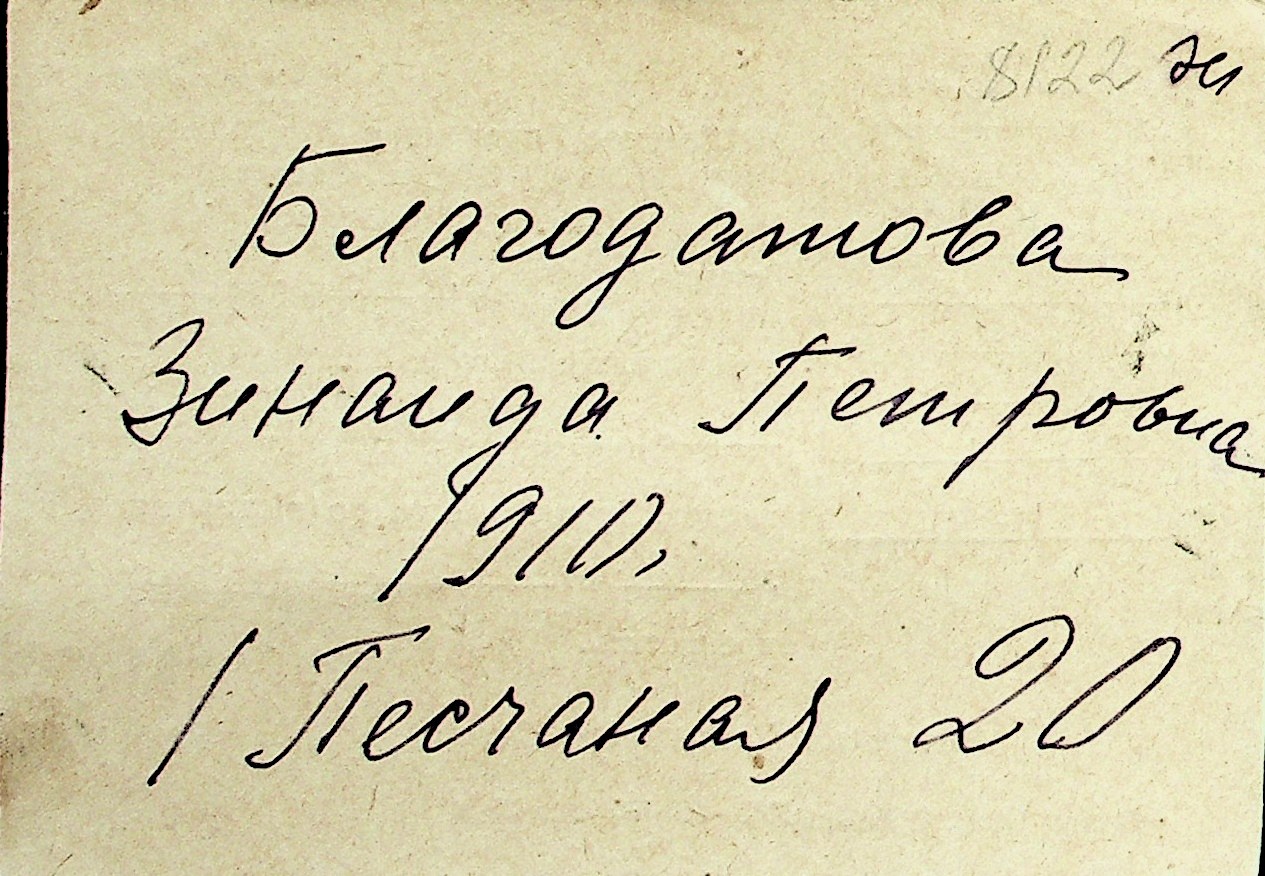 8122 ж
Благодатова
Зинаида Петровна
1910,
1 Песчаная 20